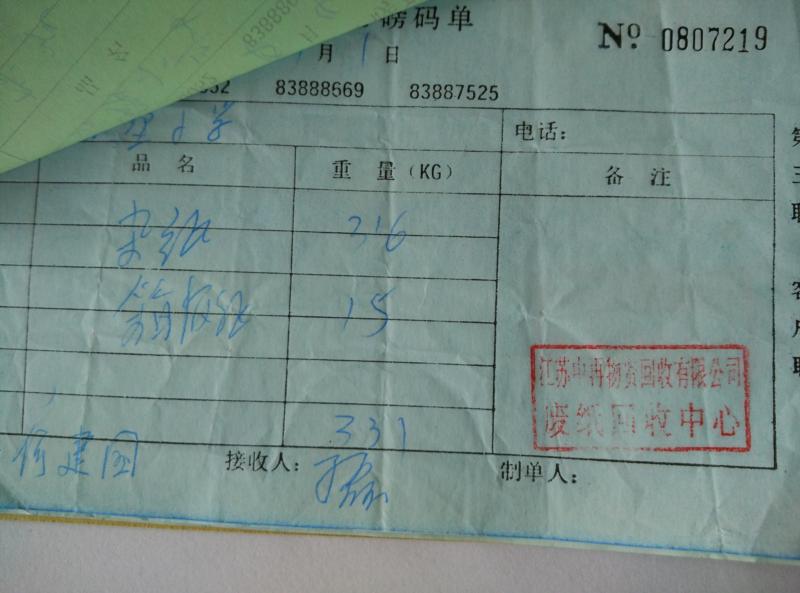 磅码单
№ 0807219
月 1 日
83888669 83887525
小学
电话：
品 名 重 量（KG） 备 注
杂纸 316
箱板纸 15
331
江苏中再物资回收有限公司
废纸回收中心
建国
接收人：
制单人：
第三联
客户联